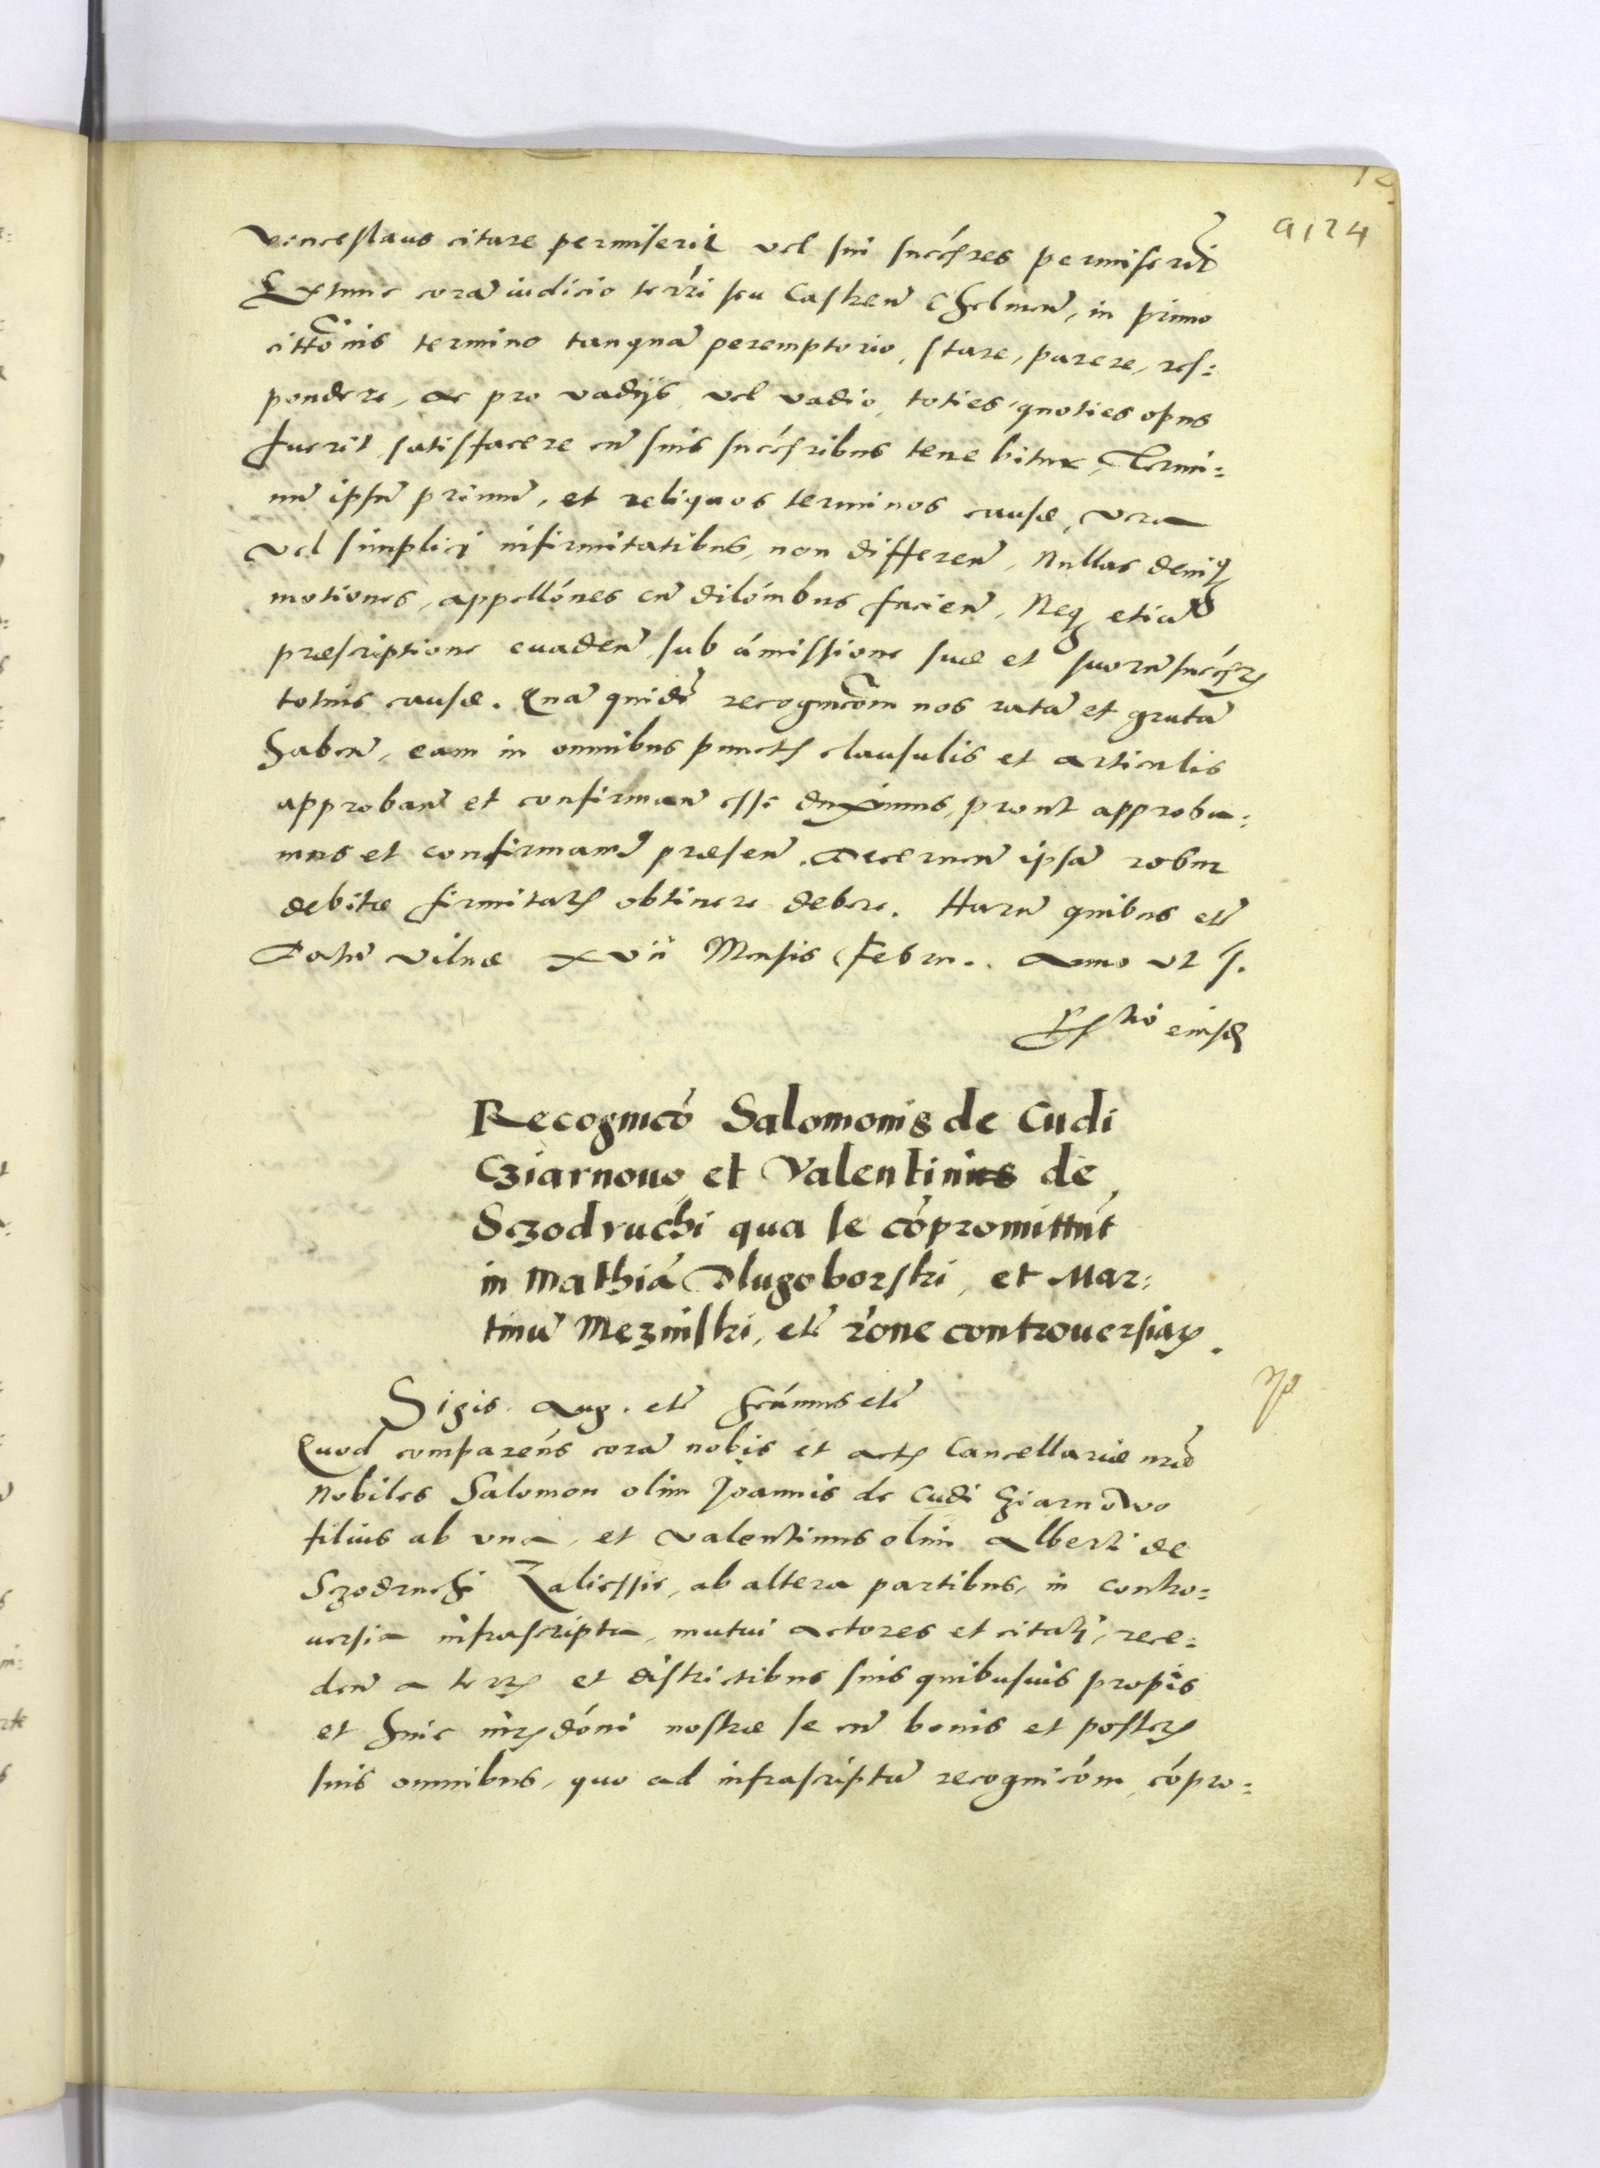 12
9124
Venceslaus citare permiserit vel sui succẽsres permiserĩt
Extunc corã iudicio terrĩ seu Castreñ Chelmeñ, in primo
cittõnis termino tanquã peremptorio, stare, parere, res:
pondere, ac pro vadijs, vel vadio, toties quoties opus
fuerit, satisfacere cũ suis succẽsribus tenebitur, Termi:
nũ ipsũ primũ, et reliquos terminos causæ, vera
vel simplici infirmitatibus, non differeñ, Nullas deniq
motiones, appellónes cũ dilómbus facieñ, Neq etiã
præscriptione euadeñ, sub ámissione suæ et suorũ succẽsrȝ
totius causæ. Quã quidẽ recognicõm nos ratã et gratã
habeñ, eam in omnibus punctȝ clausulis et articulis
approbañ et confirmañ esse duximus, prout approba:
mus et confirmamꝰ præseñ. Decerneñ ipsã robur
debitæ firmitatȝ obtinere debere. Harũ quibus etč
Datũ Vilnæ xvii Mensis Febru.. Anno vt s.
Rȝtió eiusđ
Recognicó Salomonis de Cudi
Cziarnouo, et Valentinius de
Sczodruchi qua se cópromittũt
in Mathiã Dlugoborski, et Mar:
tinũ Mezniski, etč róne controuersiaꝝ.
Sigis. Aug. etč scámus etč
Quod comparéns corã nobis et actȝ Cancellariæ nræ
Nobiles Salomon olim Joannis de Cudi Cziarnowo
filius ab vna, et Valentinus olim Alberti de
Sczodruchi Zaliessie, ab altera partibus, in contro:
uersia infrascripta, mutui actores et citati, rece:
deñ a terrȝ et districtibus suis quibusuis propis
et huic inrȝdóni nostræ se cũ bonis et posterȝ
suis omnibus, quo ad infrascriptã recognicóm, cópro: